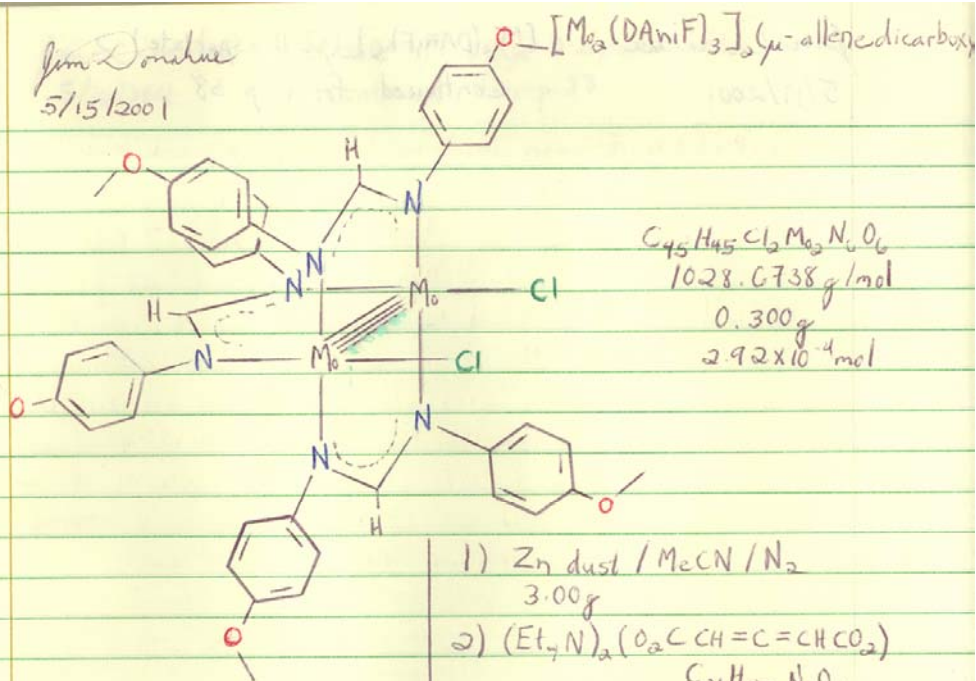 Jim Donahue
5/15/2001
[Mo2(DAniF)3]2(μ-allenedicarboxy
C45H45Cl2Mo2N6O6
1028.6738 g/mol
0.300g
2.92x10-4 mol
O
O
H
N
N
N
Mo
Cl
H
N
Mo
Cl
O
N
N
H
O
O
1) Zn dust / MeCN / N2
3.00g
2) (Et4N)2(O2CCH=C=CHCO2)